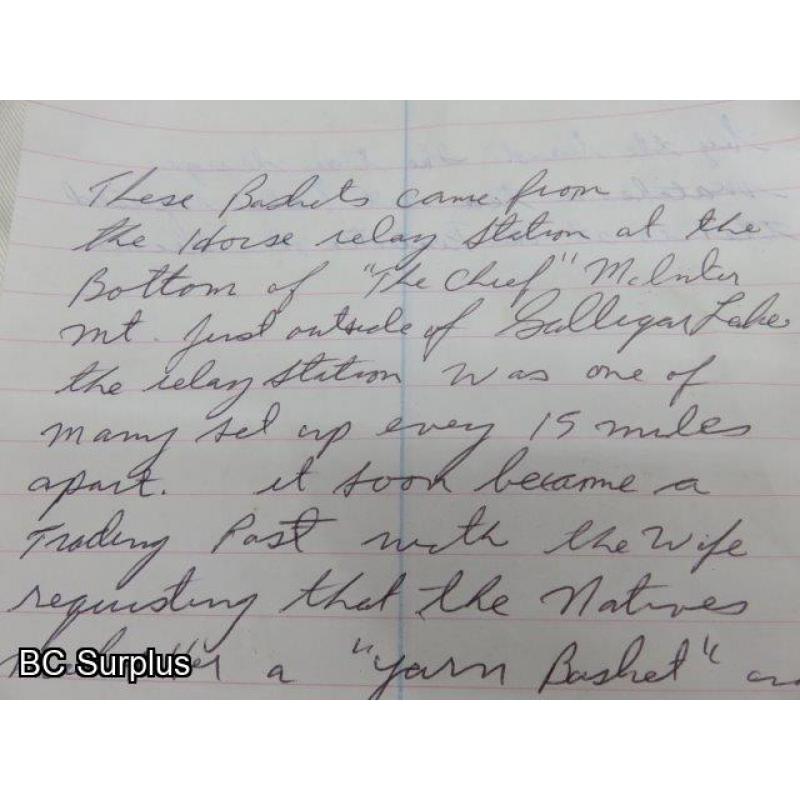 These Baskets came from
the Horse relay Station at the
Bottom of "The Chief" McInter
Mt. just outside of Galligar Lake
the relay Station was one of
many set up every 15 miles
apart. it soon became a
Trading Post with the Wife
requisting that the Natives
a "yarn Basket"
BC Surplus